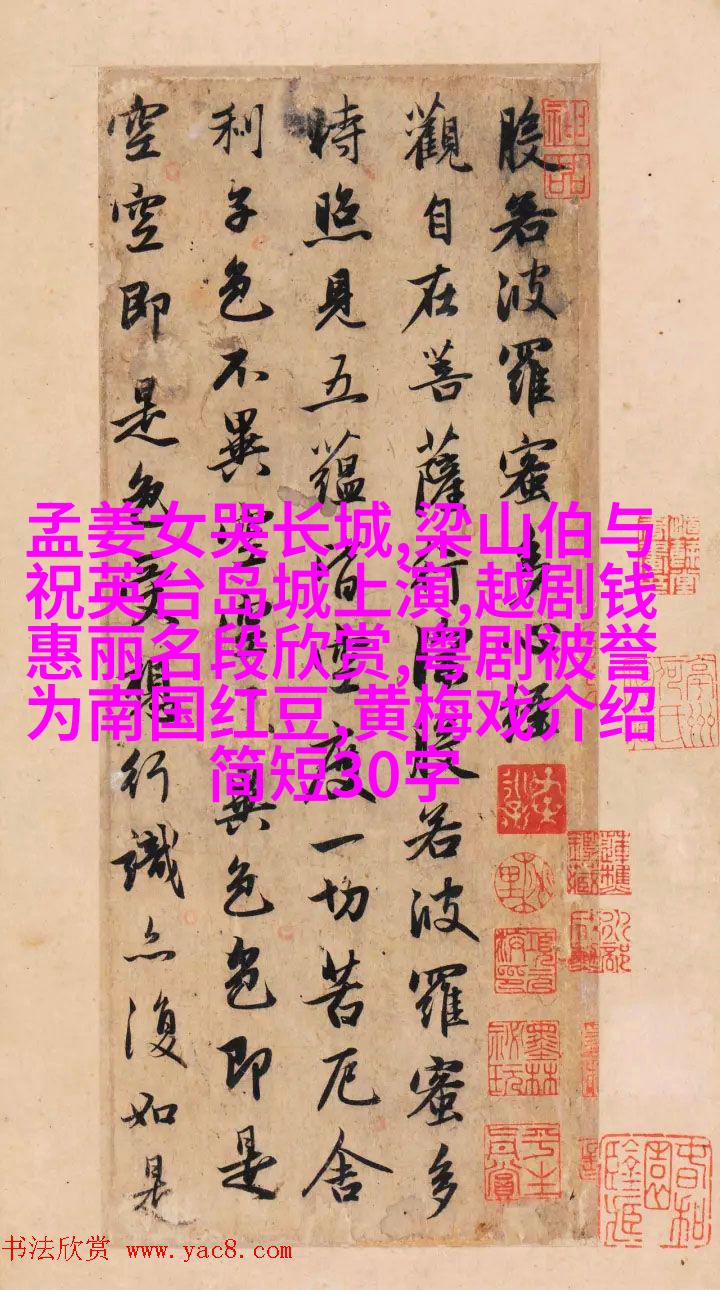 般若波羅蜜多心經
觀自在菩薩行深般若波羅蜜多
時照見五蘊皆空度一切苦厄舍
利子色不異空空不異色色即是
空空即是色受想行識亦復如是
孟姜女哭长城,梁山伯与
祝英台岛城上演,越剧钱
惠丽名段欣赏,粤剧被誉
为南国红豆,黄梅戏介绍
简短30字
神品
书法欣赏 www.yac8.com